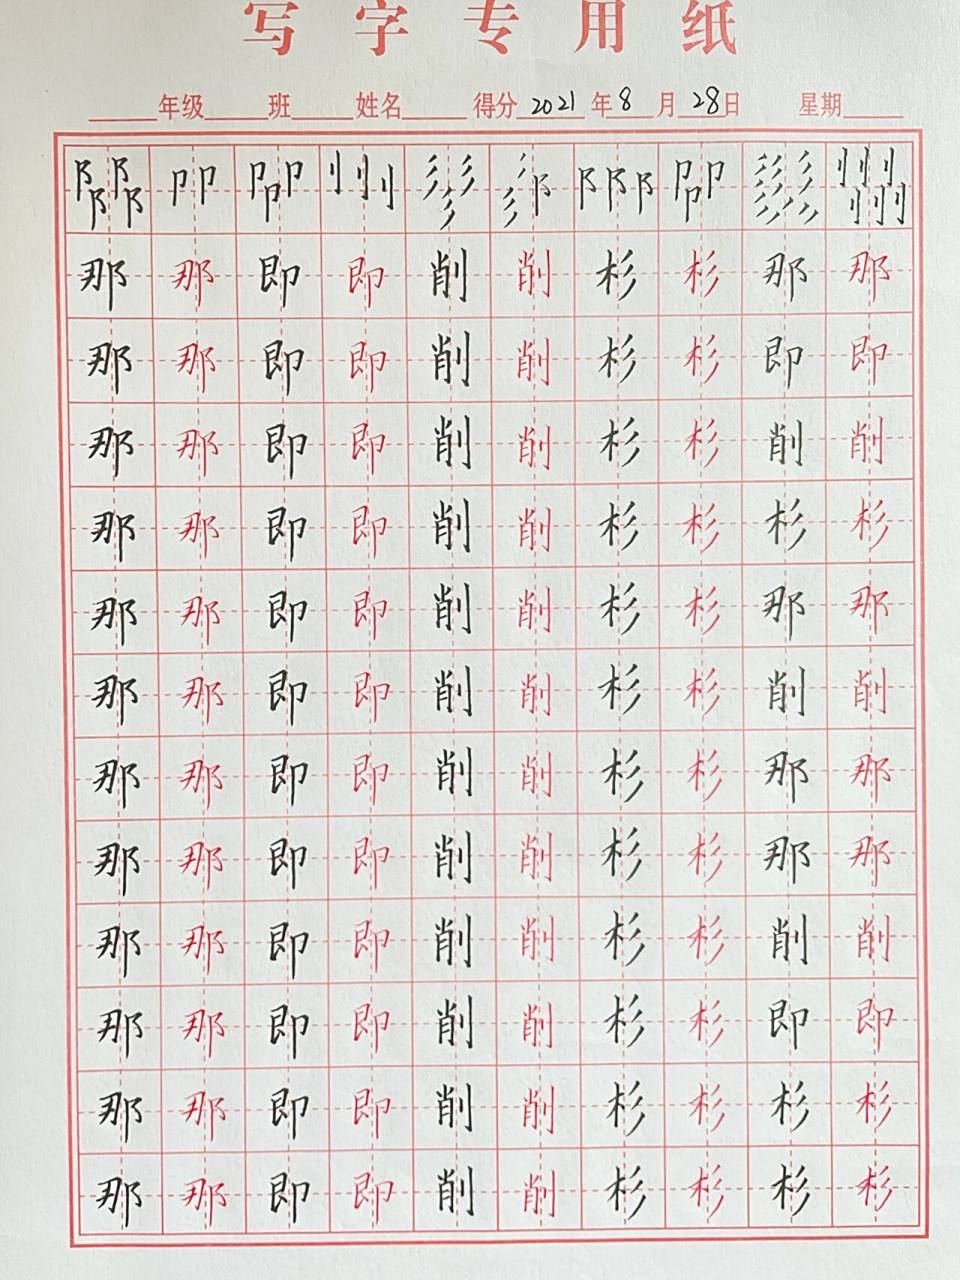 写字专用纸
年级 班 姓名 得分 2021 年 8 月 28 日 星期
阝阝阝阝 卩卩 卩卩卩 刂刂刂 彡彡彡 彡彡阝 阝阝阝 卩卩卩 彡彡彡彡彡彡 刂刂刂刂刂刂
那 那 即 即 削 削 杉 杉 那 那
那 那 即 即 削 削 杉 杉 即 即
那 那 即 即 削 削 杉 杉 削 削
那 那 即 即 削 削 杉 杉 杉 杉
那 那 即 即 削 削 杉 杉 那 那
那 那 即 即 削 削 杉 杉 削 削
那 那 即 即 削 削 杉 杉 那 那
那 那 即 即 削 削 杉 杉 那 那
那 那 即 即 削 削 杉 杉 削 削
那 那 即 即 削 削 杉 杉 即 即
那 那 即 即 削 削 杉 杉 杉 杉
那 那 即 即 削 削 杉 杉 杉 杉